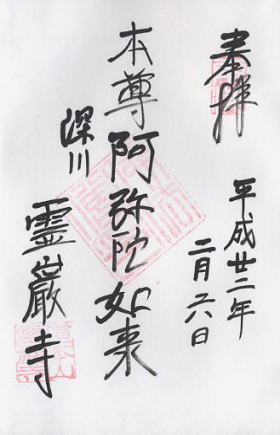 奉拝
平成廿二年
二月六日
本尊阿弥陀如来
深川
霊巌寺